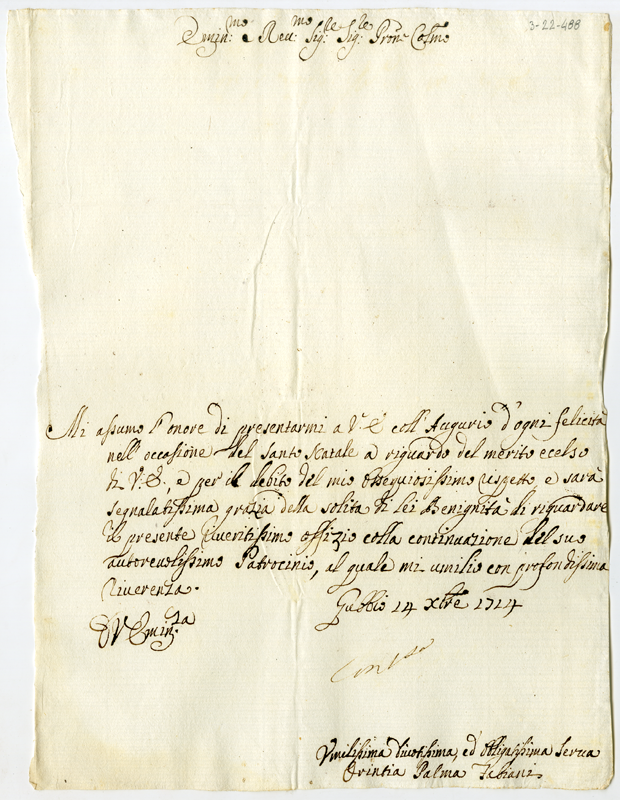 Emin:mo e Reu:mo Sig:re Sig:re Prone Colmo
3-22-488
Mi assumo l'onore di presentarmi a V:E coll'Augurio d'ogni felicità
nell'occasione del santo Natale a riguardo del merito ecelso
di V:E. e per il debito del mio ossequiosissimo rispetto, e sarà
segnalatissima grazia della solita di lei Benignità di riguardare
il presente riveritissimo offizio colla continuazione del suo
autorevolissimo Patrocinio, al quale mi umilio con profondissima
riverenza.
Gubbio 14 Xbre 1714
D V Emin:za
Umilissima divotissima, ed obligatissima Serva
Orintia Palma Fabiani